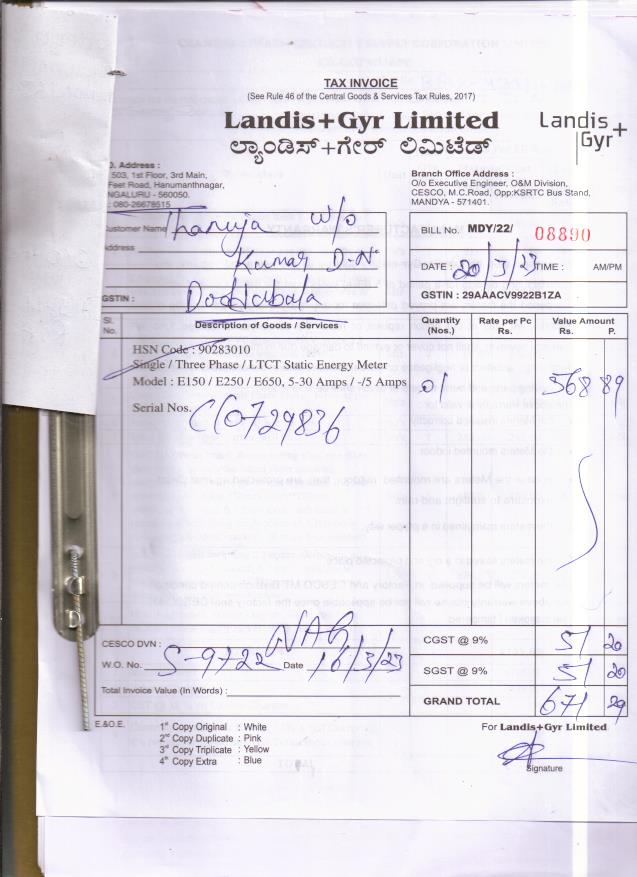 TAX INVOICE
(See Rule 46 of the Central Goods & Services Tax Rules, 2017)
Landis+Gyr Limited
ಲ್ಯಾಂಡಿಸ್+ಗೇರ್ ಲಿಮಿಟೆಡ್
Landis+
Gyr
Address :
503, 1st Floor, 3rd Main,
Feet Road, Hanumanthnagar,
NGALURU - 560050.
: 080-26678515
Branch Office Address :
O/o Executive Engineer, O&M Division,
CESCO, M.C.Road, Opp:KSRTC Bus Stand,
MANDYA - 571401.
Customer Name Thanuja w/o
Address
Kumar D-N
GSTIN : Doddabala
BILL No. MDY/22/ 08890
DATE : 20/3/23 TIME : AM/PM
GSTIN : 29AAACV9922B1ZA
Sl. No. Description of Goods / Services Quantity (Nos.) Rate per Pc Rs. Value Amount Rs. P.
HSN Code : 90283010
Single / Three Phase / LTCT Static Energy Meter
Model : E150 / E250 / E650, 5-30 Amps / -/5 Amps 01 568 89
Serial Nos. CC0729836
CESCO DVN : NAG
W.O. No. S-9722 Date 16/3/23
Total Invoice Value (In Words) :
CGST @ 9% 51 20
SGST @ 9% 51 20
GRAND TOTAL 671 29
E.&O.E.
1st Copy Original : White
2nd Copy Duplicate : Pink
3rd Copy Triplicate : Yellow
4th Copy Extra : Blue
For Landis+Gyr Limited
Signature